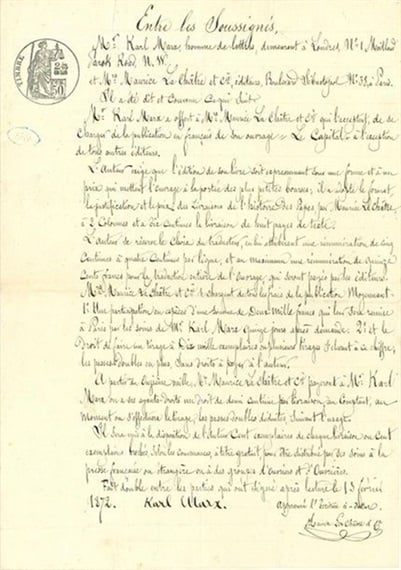 Entre les Soussignés,
Mr. Karl Marx, homme de lettres, demeurant à Londres, No. 1, Maitland
Park Road, N.W.
et Mr. Maurice La Châtre et Cie, éditeurs, Boulevard No. 38, à Paris.
Il a été dit et Convenu Ce qui Suit:
Mr. Karl Marx a offert à Mr. Maurice La Châtre et Cie qui l'acceptent, de se
Charger de la publication en français de son ouvrage „Le Capital" à l'exception
de tous autres éditeurs.
L'auteur exige que l'édition de son livre soit sous une forme et à un
prix qui mettent l'ouvrage à la portée des plus petites bourses; il a le format,
la justification et le prix des Livraisons de l'histoire des Papes par Maurice La Châtre,
à 2 Colonnes et à dix Centimes la livraison de huit pages de texte.
L'auteur se réserve le Choix du traducteur, en lui une rémunération de cinq
Centimes à quatre Centimes par ligne, et au maximum une rémunération de quinze
Cents francs pour la traduction entière de l'ouvrage, qui seront payés par les éditeurs.
Mr. Maurice La Châtre et Cie se chargent de tous les frais de la publication Moyennant:
1° Une participation en espèces d'une Somme de Deux mille francs qui leur Sera remise
à Paris par les soins de Mr. Karl Marx quinze jours après demande: 2° et le
Droit de faire un tirage à Dix mille exemplaires ou plusieurs tirages à ce chiffre,
les passes doubles en plus Sans droits à payer à l'auteur.
A partir du onzième mille, Mr. Maurice La Châtre et Cie payeront à Mr. Karl
Marx ou à ses ayants-droits un droit de demi Centime par livraison, au Comptant, au
moment où s'effectuera le tirage, les passes doubles déduites, suivant l'usage.
Il Sera mis à la disposition de l'auteur Cent exemplaires de chaque livraison ou Cent
exemplaires brochés, Selon les à titre gratuit, pour être distribués par ses soins à la
presse française ou étrangère ou à des groupes d'ouvriers et d'ouvrières.
Fait double entre les parties qui ont signé après lecture le 13 février
1872. Karl Marx. Approuvé l'écriture
Maurice La Châtre et Cie
TIMBRE
50